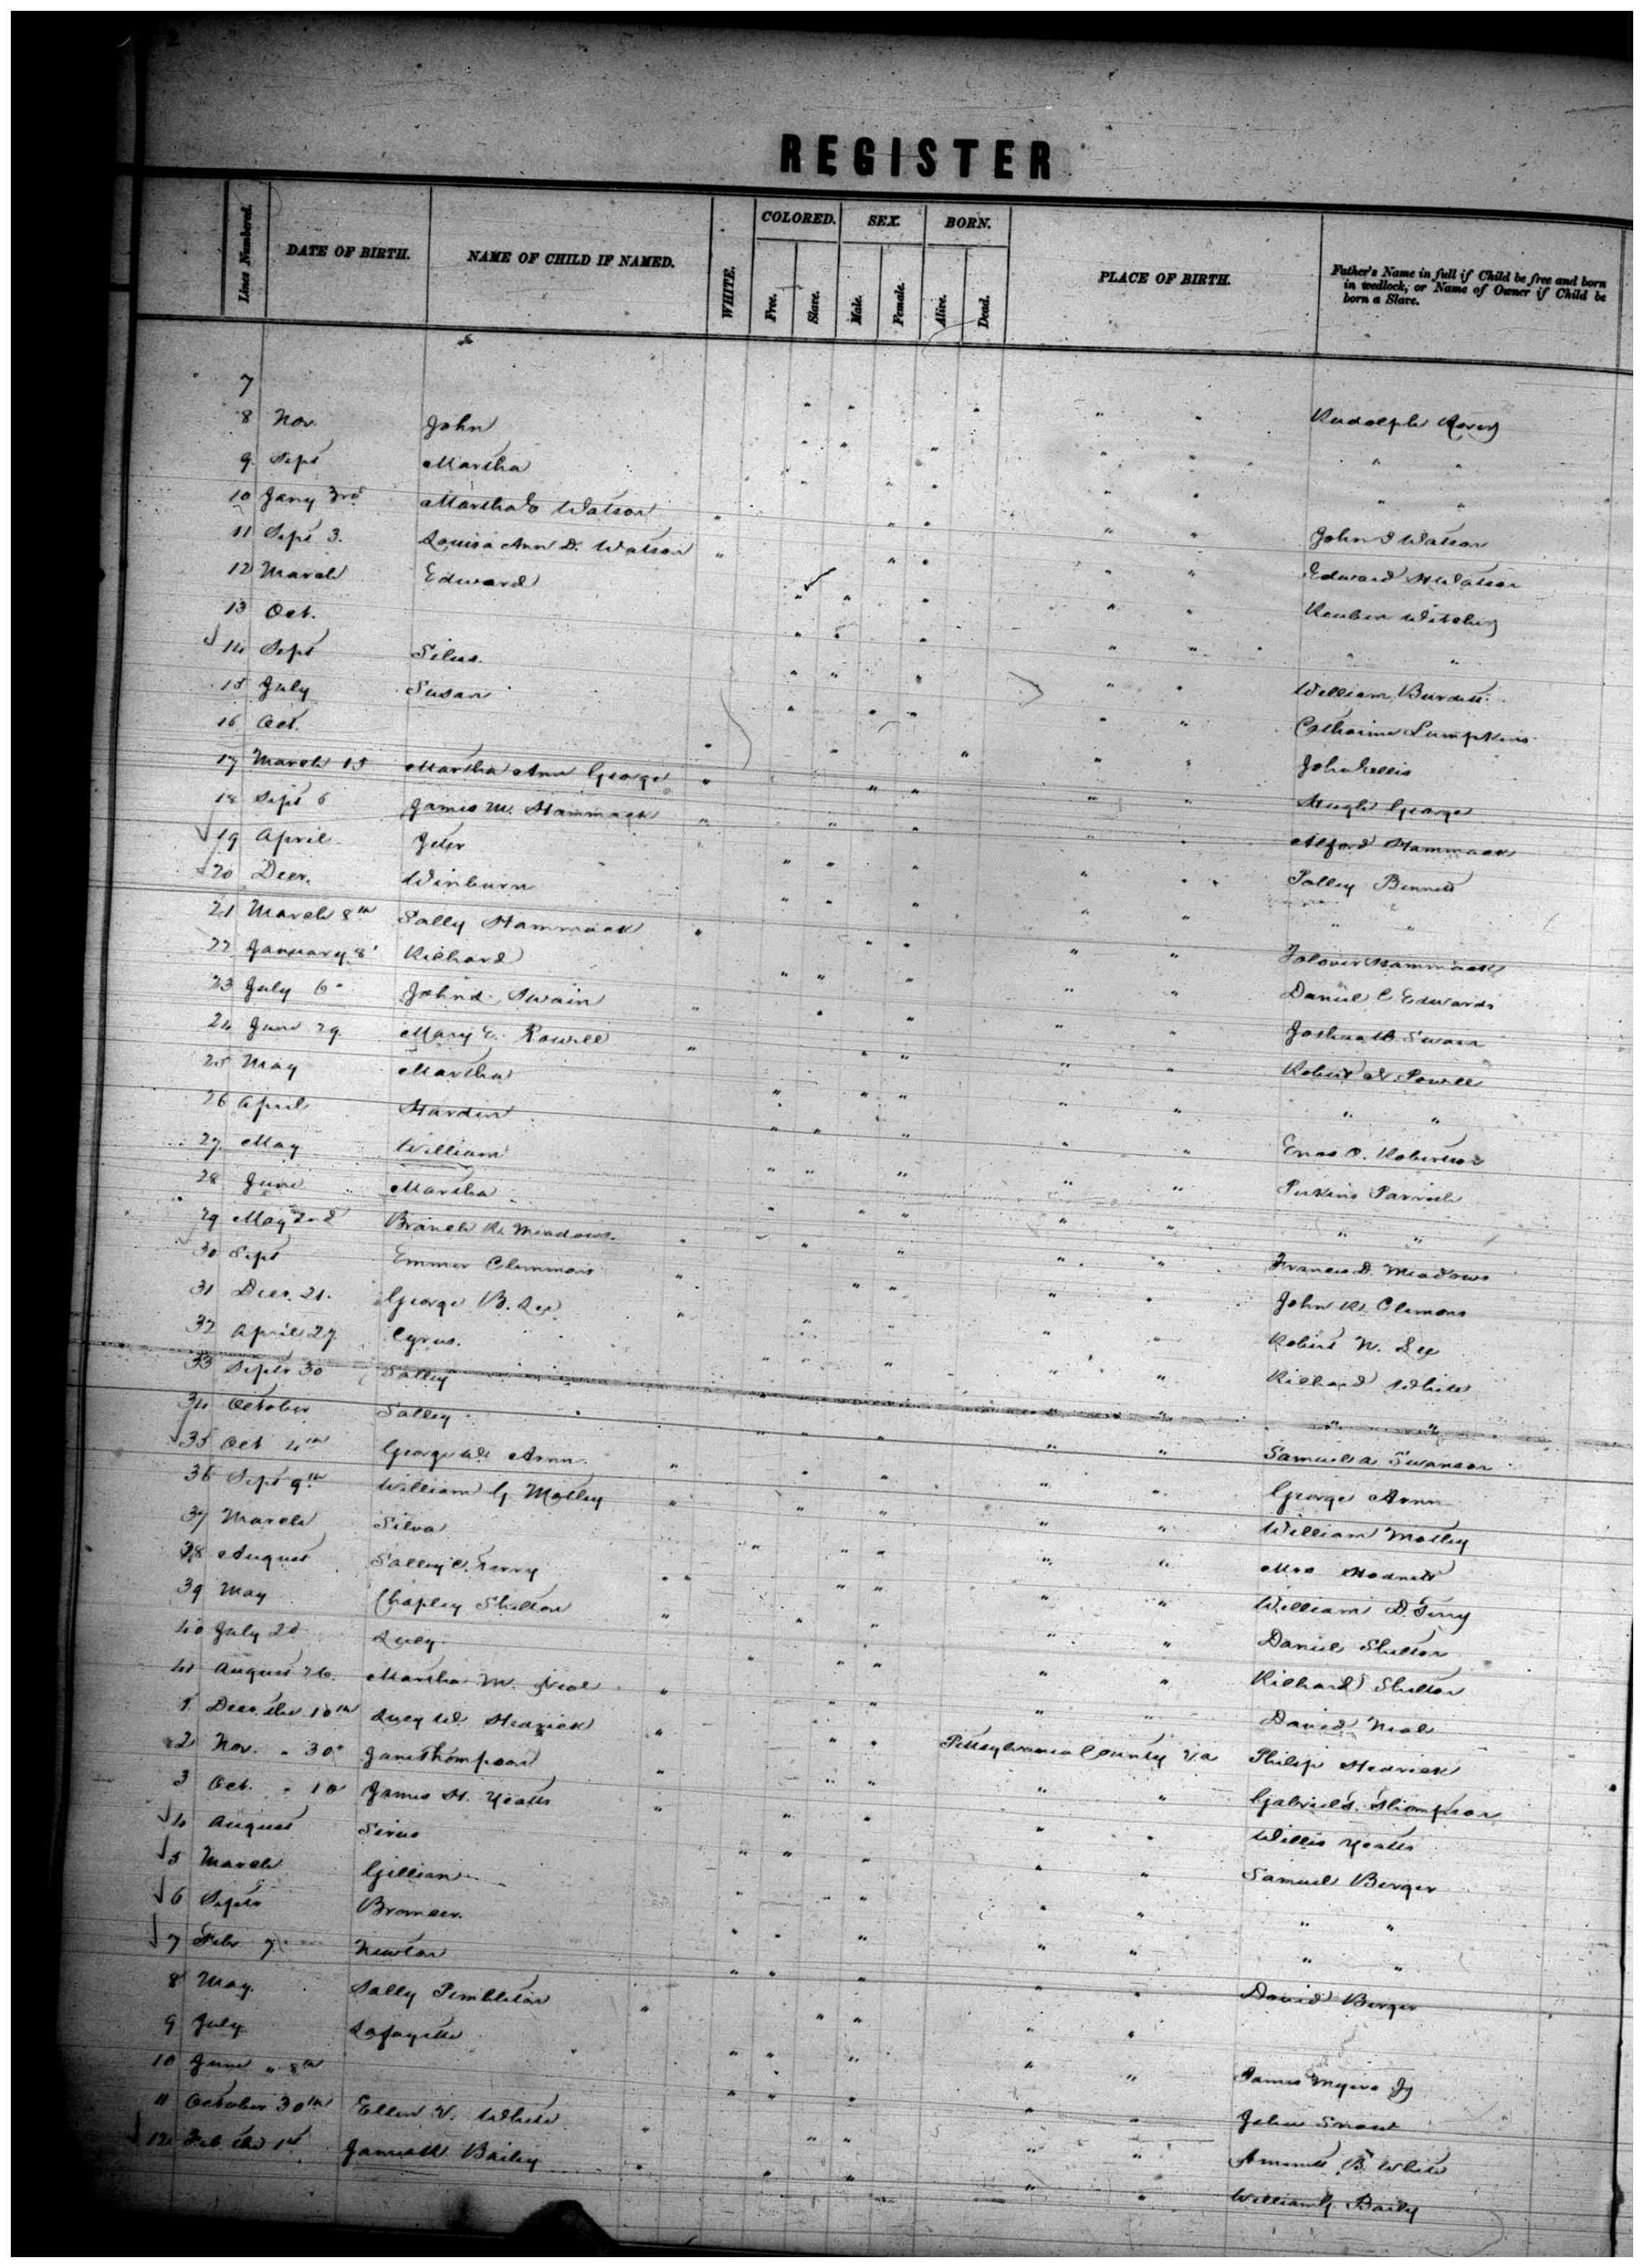 REGISTER
Lines Numbered. DATE OF BIRTH. NAME OF CHILD IF NAMED. WHITE. COLORED. Free. Slave. SEX. Male. Female. BORN. Alive. Dead. PLACE OF BIRTH. Father's Name in full if Child be free and born in wedlock, or Name of Owner if Child be born a Slave.
7
8 Nov. John Rudolph
9 Sept Martha " "
10 Jany 3rd Martha Watson " "
11 Sept 3. Louisa Ann D. Watson John Watson
12 March Edward Edward Watson
13 Oct. Reuben
14 Sept Silus. " "
15 July Susan William Burdett
16 Oct. Catharine Lumpkins
17 March 15 Martha Ann George John
18 Sept 6 James M. Hammack Hugh George
19 April Jeter Alford Hammack
20 Decr. Winburn Polley Bennett
21 March 8th Sally Hammack " "
22 January 8 Richard Hammack
23 July 6 John Swain Daniel C Edwards
24 June 29. Mary E. Powell Joshua Swain
25 May Martha Robert Powell
26 April Hardin " "
27. May William Robertson
28 June Martha Perkins Parrish
29 May 2nd Branch R. Meadows " "
30 Sept Emmer Clemmons Francis D. Meadows
31 Decr. 21. George B. Lee John R. Clemons
32 April 27 Cyrus. Robert W. Lee
33 Septr 30 Salley Richard White
34 October Salley " "
35 Oct 4th George Arnn Samuel A Swanson
36 Sept 9th William G. Motley George Arnn
37 March Silva William Motley
38 August Salley C. Terry Mrs Hodnett
39 May Chapley Shelton William D. Terry
40 July 20 Lucy Daniel Shelton
41 August 26. Martha M. Neal Richard Shelton
1 Decr. the 10th Lucy W. Hedrick David Neal
2 Nov. " 30 Jane Thompson Pittsylvania County Va Philip Hedrick
3 Oct. " 10 James H. Yeatts " " Gabriel Thompson
4 August Sirus " " Willis Yeatts
5 March Gilliam " " Samuel Berger
6 Septr " " " "
7 Febr 7 Newton " " " "
8 May Sally Pembleton " " David Berger
9 July Lafayette " "
10 June " 8th " " James Myers
11 October 30th Ellen V. White " " John
12 Feb the 1st Bailey " " B. White
" " William G. Baily